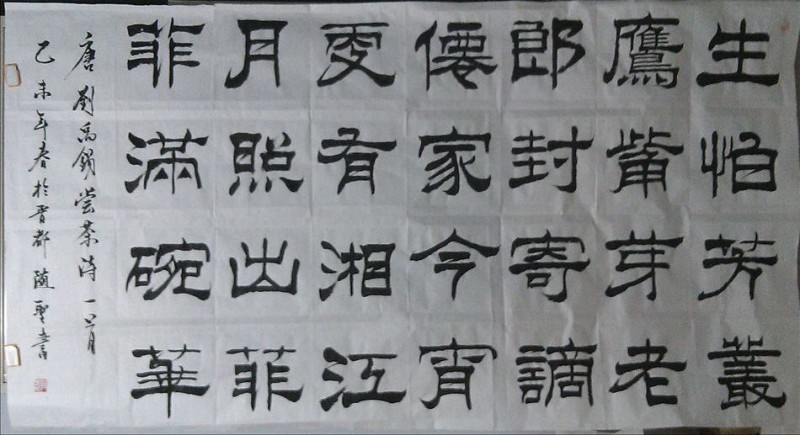 生怕芳叢
鷹觜芽老
郎封寄謫
僊家今宵
更有湘江
月照出菲
菲滿碗華
唐劉禹錫嘗茶诗一首
乙未年春於晋都随聖書